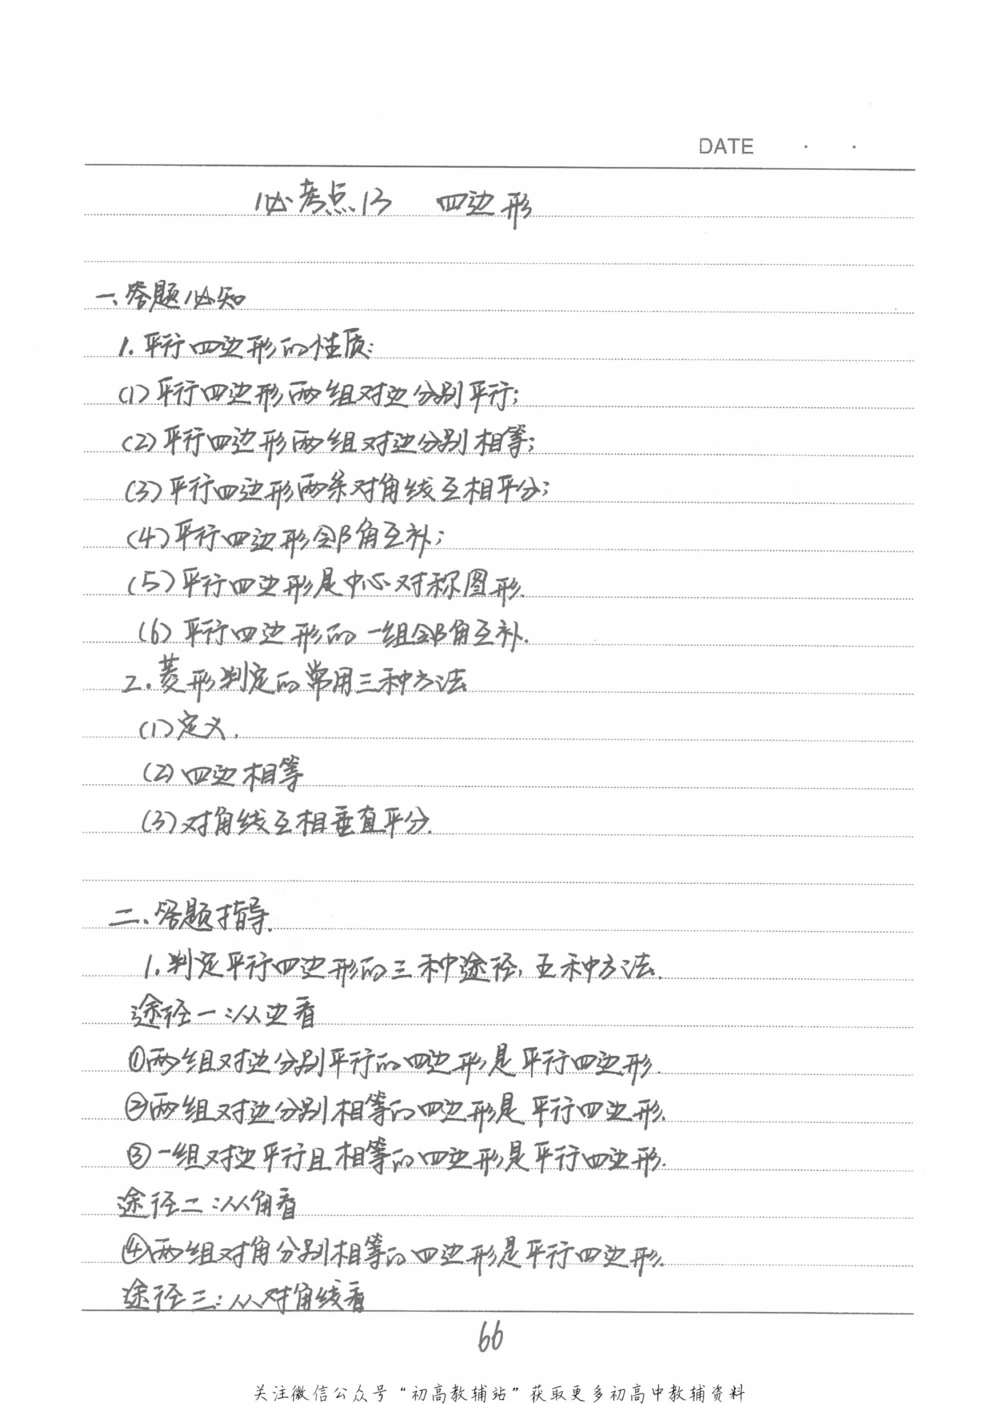 DATE . .
必考点13 四边形
一、答题必知
1.平行四边形的性质:
(1)平行四边形两组对边分别平行;
(2)平行四边形两组对边分别相等;
(3)平行四边形两条对角线互相平分;
(4)平行四边形邻角互补;
(5)平行四边形是中心对称图形.
(6)平行四边形的一组邻角互补.
2.菱形判定的常用三种方法
(1)定义.
(2)四边相等
(3)对角线互相垂直平分.
二、答题指导.
1.判定平行四边形的三种途径,五种方法.
途径一:从边看
①两组对边分别平行的四边形是平行四边形.
②两组对边分别相等的四边形是平行四边形.
③一组对边平行且相等的四边形是平行四边形.
途径二:从角看
④两组对角分别相等的四边形是平行四边形.
途径三:从对角线看
66
关注微信公众号“初高教辅站”获取更多初高中教辅资料